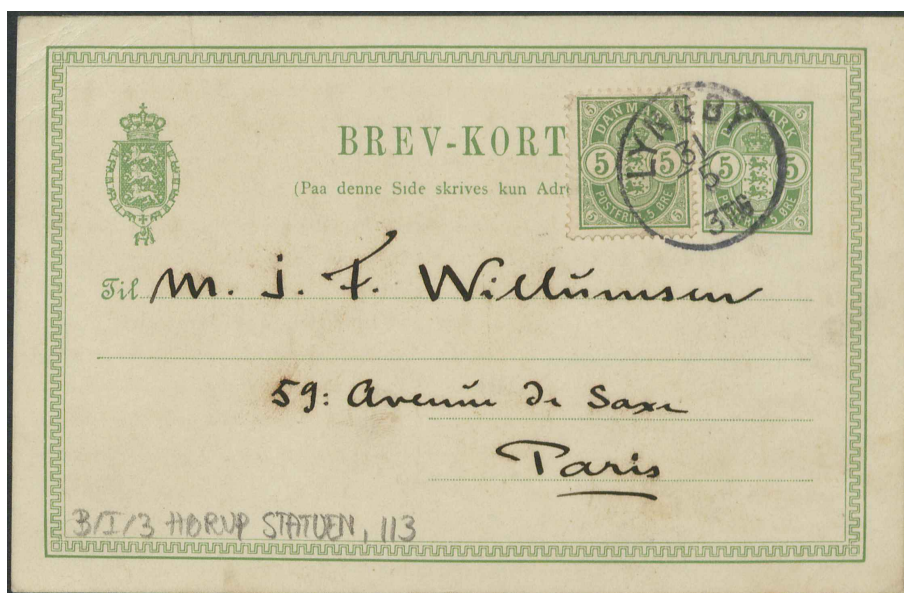 BREV-KORT
(Paa denne Side skrives kun
5 DANMARK 5
5 5
POSTFRIM. 5 ØRE
5 5
LYNGBY
31/5
Til M. J. F. Willumsen
59: Avenue de Saxe
Paris
B/I/3 HØRUP STATUEN, 113